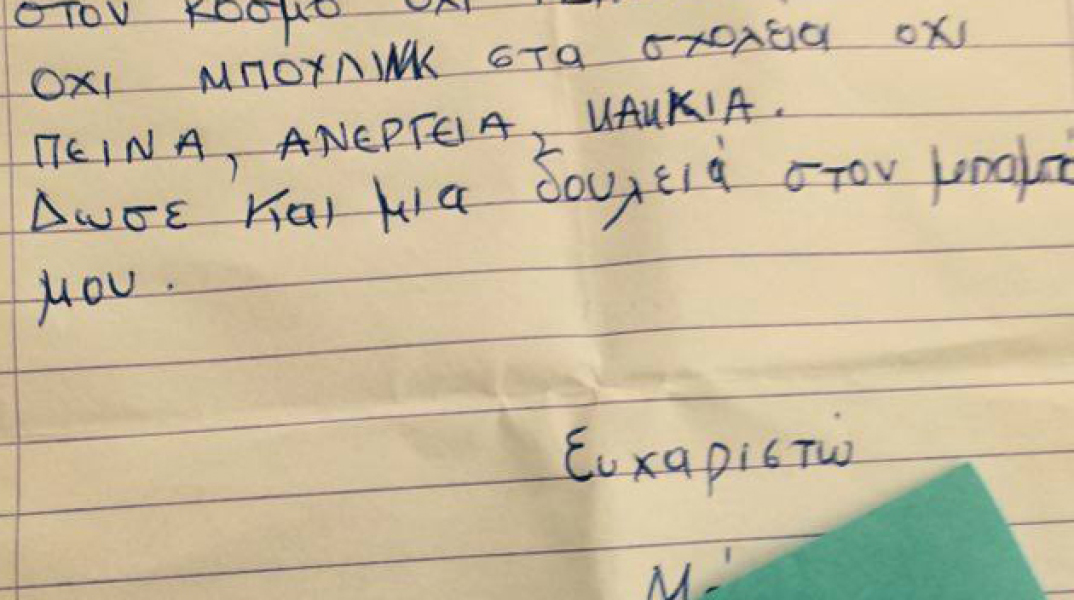 στον κοσμο οχι
ΟΧΙ ΜΠΟΥΛΙΝΚ στα σχολεια οχι
ΠΕΙΝΑ, ΑΝΕΡΓΕΙΑ, ΚΑΚΚΙΑ.
Δωσε Και μια δουλειά στον μπαμπά
μου.
Ευχαριστώ